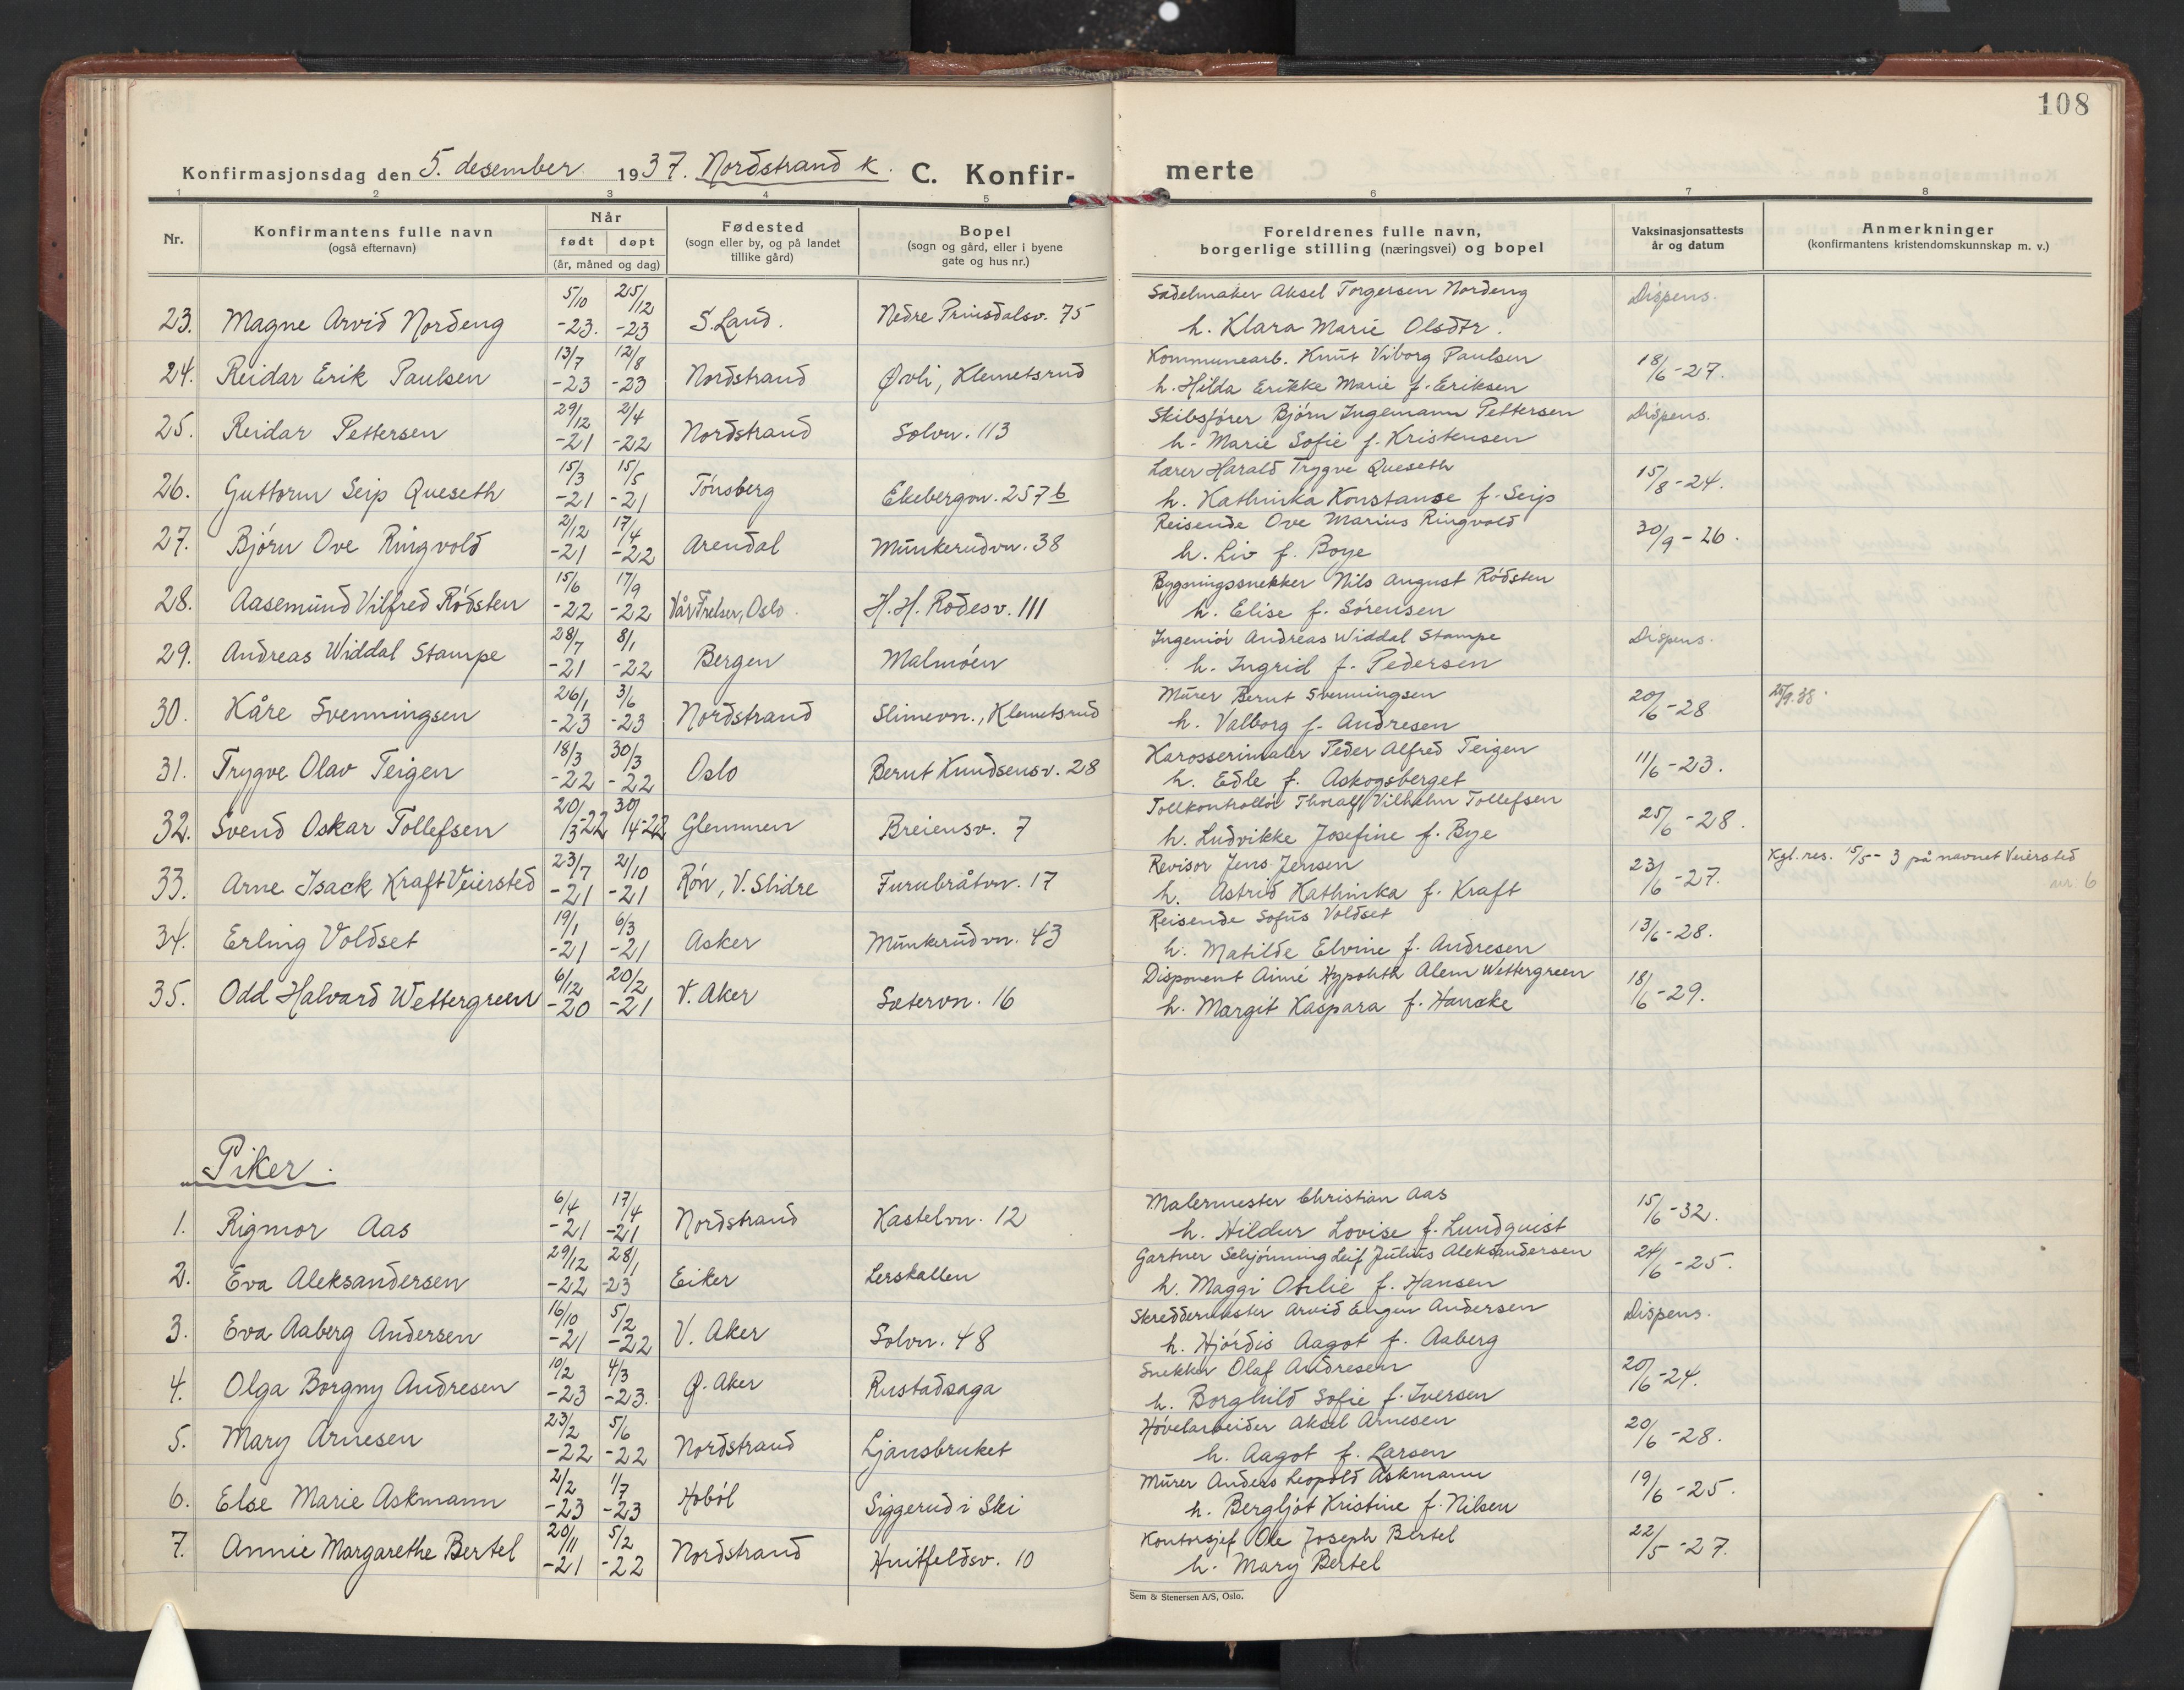 108
Konfirmasjonsdag den 5. desember 1937. Nordstrand k. C. Konfir-
merte
1 2 3 4 5 6 7 8
Nr.
Konfirmantens fulle navn
(også efternavn)
Når
født døpt
(år, måned og dag)
Fødested
(sogn eller by, og på landet
tillike gård)
Bopel
(sogn og gård, eller i byene
gate og hus nr.)
Foreldrenes fulle navn,
borgerlige stilling (næringsvei) og bopel
Vaksinasjonsattests
år og datum
Anmerkninger
(konfirmantens kristendomskunnskap m. v.)
5/10 25/12 Sadelmaker Aksel Torgersen Nordeng Dispens.
23. Magne Arvid Nordeng -23. -23 S. Land. Nedre Prinsdalsv. 75 h. Klara Marie Olsdtr.
13/7 12/8 Kommunearb. Knut Viborg Paulsen 18/6-27.
24. Reidar Erik Paulsen -23 -23 Nordstrand Øvli, Klemetsrud h. Hilda Erikke Marie f. Eriksen
29/12 2/4 Skibsfører Bjørn Ingemann Pettersen Dispens.
25. Reidar Pettersen -21 -22 Nordstrand Solvn. 113 h. Marie Sofie f. Kristensen
15/3 15/5 Lærer Harald Trygve Queseth 15/8-24.
26. Guttorm Seip Queseth -21 -21 Tønsberg Ekebergvn. 257 b h. Kathinka Konstanse f. Seip
2/12 17/4 Reisende Ove Marius Ringvold 30/9-26.
27. Bjørn Ove Ringvold -21 -22 Arendal Munkerudvn. 38 h. Liv f. Boye
15/6 17/9 Bygningssnekker Nils August Rødsten
28. Aasemund Vilfred Rødsten -22 -22 Vår Frelser, Oslo. H. H. Rodesv. 111 h. Elise f. Sørensen
28/7 8/1 Ingeniør Andreas Widdal Stampe Dispens.
29. Andreas Widdal Stampe -21 -22 Bergen Malmøen h. Ingrid f. Pedersen
26/1 3/6 Murer Bernt Svenningsen 20/6-28
30. Kåre Svenningsen -23 -23 Nordstrand Slimevn., Klemetsrud h. Valborg f. Andresen
18/3 30/3 Karosserimaler Peder Alfred Teigen 11/6-23.
31. Trygve Olav Teigen -22 -22 Oslo Bernt Knudsensv. 28 h. Edle f. Askogsberget
20/3-22 30/4-22 Tollkontrollør Thoralf Vilhelm Tollefsen 25/6-28.
32. Svend Oskar Tollefsen Glemmen Breiensv. 7 h. Ludvikke Josefine f. Bye
23/7 2/10 Revisor Jens Jensen 23/6-27. Kgl. res. 15/5-3 på navnet Veiersted
33. Arne Isack Kraft Veiersted -21 -21 Røn, V. Slidre Furubråtvn. 17 h. Astrid Kathinka f. Kraft nr. 6
19/1 6/3 Reisende Sofus Voldset 13/6-28.
34. Erling Voldset -21 -21 Asker Munkerudvn. 43 h. Matilde Elvine f. Andresen
6/12 20/2 Disponent Aimé Alem Wettergreen 18/6-29.
35. Odd Halvard Wettergreen -20 -21 V. Aker Sætervn. 16 h. Margit Kaspara f. Hancke
Piker.
6/4 17/4 Malermester Christian Aas 15/6-32.
1. Rigmor Aas -21 -21 Nordstrand Kastelvn. 12 h. Hildur Lovise f. Lundquist
29/12 28/1 Gartner Schjønning Leif Julius Aleksandersen 24/6-25.
2. Eva Aleksandersen -22 -23 Eiker Lerskallen h. Maggi Otilie f. Hansen
16/10 5/2 Skreddermester Arvid Eugen Andersen Dispens.
3. Eva Aaberg Andersen -21 -22 V. Aker Solvn. 48 h. Hjørdis Aagot f. Aaberg
10/2 4/3 Snekker Olaf Andresen 20/6-24.
4. Olga Borgny Andresen -23 -23. Ø. Aker Rustadsaga h. Borghild Sofie f. Iversen
23/2 5/6 Høvelarbeider Aksel Arnesen 20/6-28.
5. Mary Arnesen -22 -22 Nordstrand Ljansbruket h. Aagot f. Larsen
2/2 1/7 Murer Anders Leopold Askmann 19/6-25.
6. Else Marie Askmann -23 -23 Hobøl Siggerud i Ski h. Bergljot Kristine f. Nilsen
20/11 5/2 Kontorsjef Ole Joseph Bertel 22/5-27.
7. Annie Margarethe Bertel -21 -22 Nordstrand Huitfeldsv. 10 h. Mary Bertel
Sem & Stenersen A/S, Oslo.